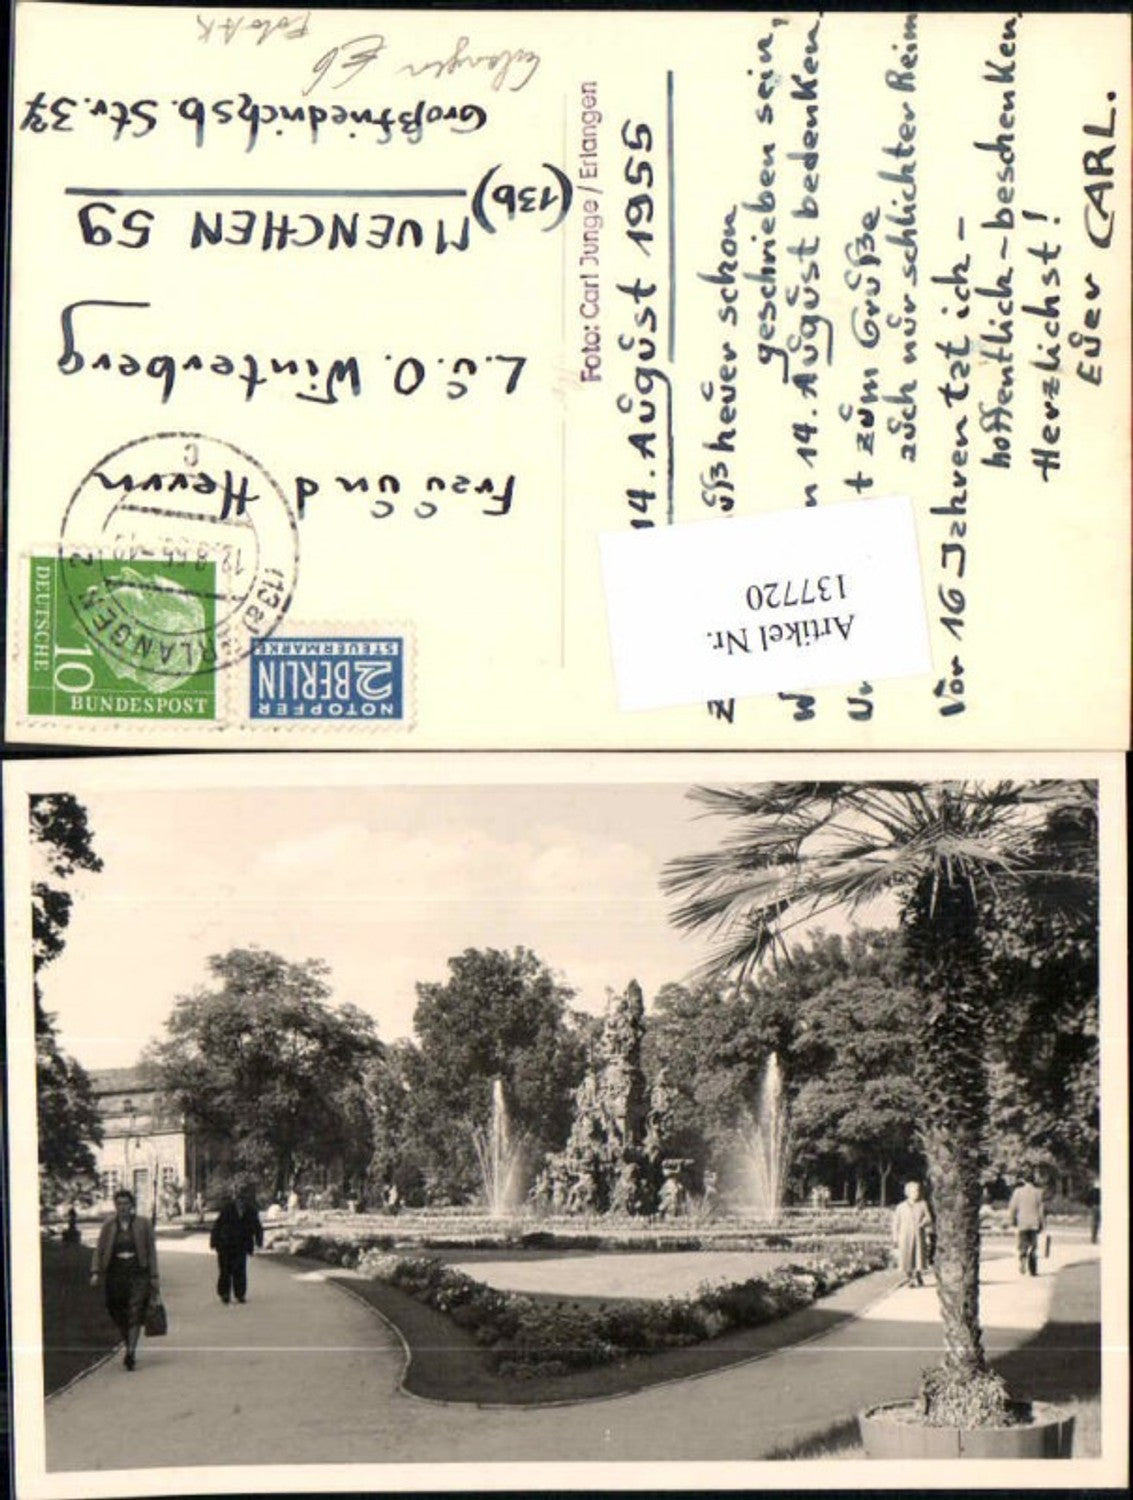 Foto AK
Erlangen
14. August 1955
heuer schon
geschrieben sein,
14. August bedenken,
zum Grüße
auch nur schlichter Reim
Vor 16 Jahren tat ich –
hoffentlich – beschenken.
Herzlichst!
Euer CARL.
Foto: Carl Junge / Erlangen
Frau und Herrn
L. u. O. Winterberg
(13b)
MUENCHEN 59
Großfriedrichsb. Str. 37
DEUTSCHE
BUNDESPOST
10
NOTOPFER
2 BERLIN
STEUERMARKE
(13a) ERLANGEN 2
c
Artikel Nr.
137720